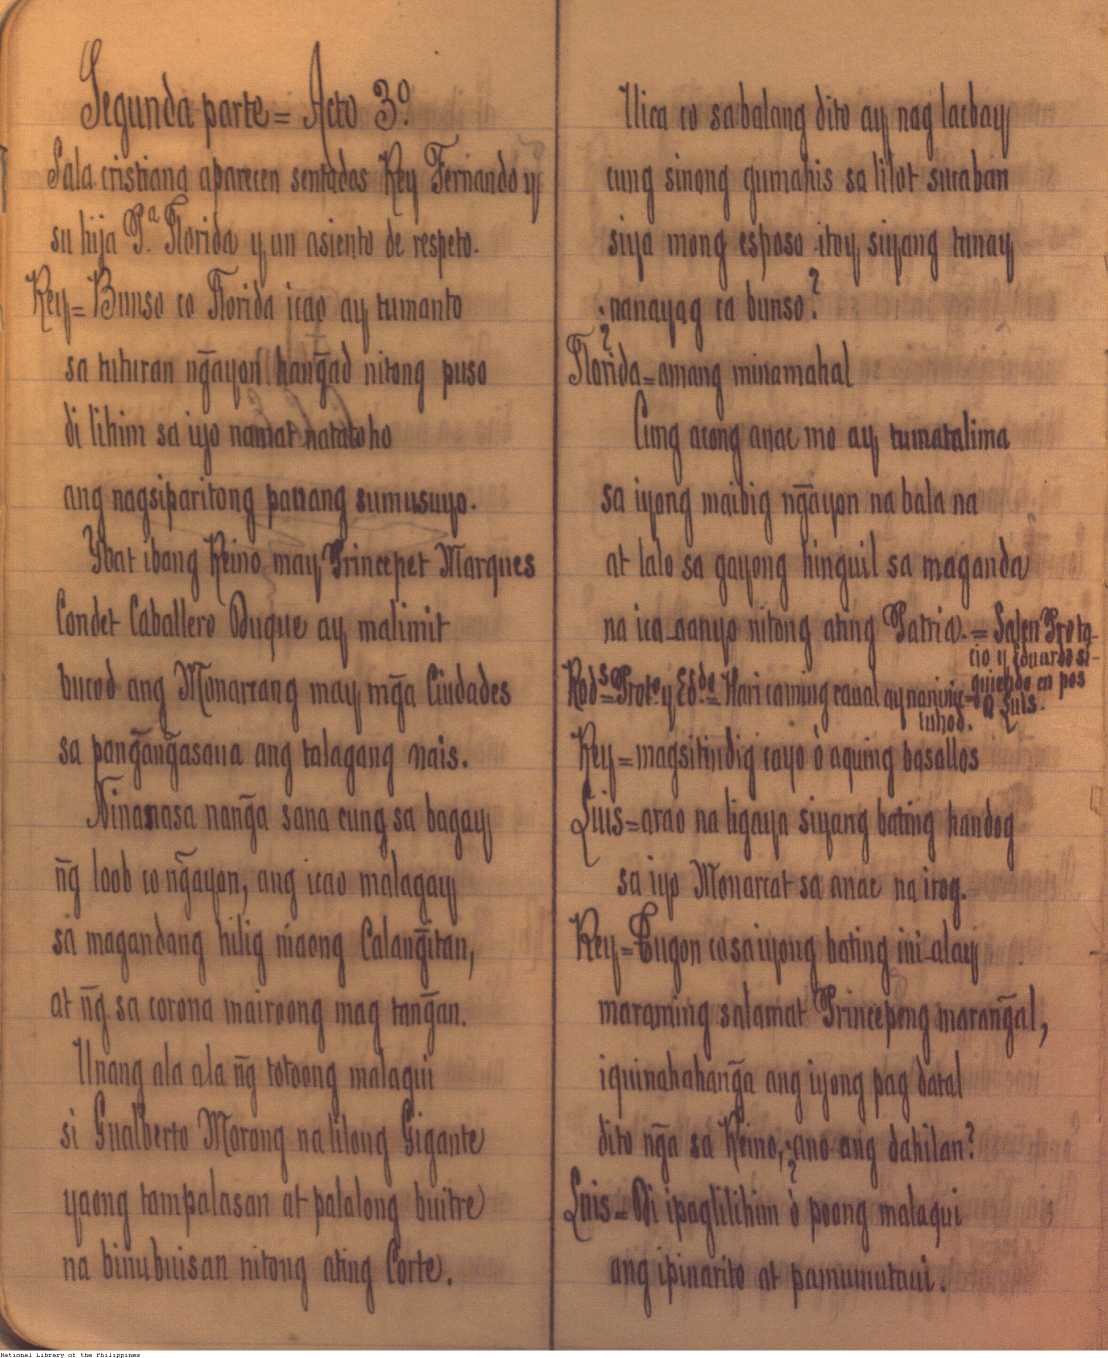 Segunda parte = Acto 3º
Sala cristiana aparecen sentados Rey Fernando y
su hija P.ª Florida y un asiento de respeto.
Rey = Bunso co Florida icao ay tumanto
sa tuturan ng̃ayon hang̃ad nitong puso
di lihim sa iyo namat natatoho
ang nagsiparitong pauang sumusuyo.
Ybat ibang Reino may Princepet Marques
Condet Caballero Duque ay malimit
bucod ang Monarcang may mg̃a Ciudades
sa pang̃ang̃asaua ang talagang nais.
Ninanasa nang̃a sana cung sa bagay
ng̃ loob co ng̃ayon, ang icao malagay
sa magandang hilig niaong Calang̃itan,
at ng̃ sa corona mairoong mag tang̃an.
Unang ala ala ng̃ totoong malaqui
si Gualberto Morong na lilong Gigante
yaong tampalasan at palalong buitre
na binubuisan nitong ating Corte.
Uica co sa balang dito ay nag lacbay
cung sinong gumahis sa lilot sucaban
siya mong esposo itoy siyang tunay
¿nanayag ca bunso?
Florida = amang minamahal
Cung acong anac mo ay tumatalima
sa iyong maibig ng̃ayon na bala na
at lalo sa gayong hinguil sa maganda
na ica-aanyo nitong ating Patria. = Salen Prota-
cio y Eduardo si-
guiendo en pos
a Luis.
Rod.s Prot.o y Ed.do = Hari caming caual ay naninic-
luhod.
Rey = magsitindig cayo ò aquing basallos
Luis = arao na ligaya siyang bating handog
sa iyo Monarcat sa anac na irog.
Rey = Tugon co sa iyong bating ini-alay
maraming salamat Princepeng marang̃al,
iquinahahang̃a ang iyong pag datal
dito ng̃a sa Reino, ¿ano ang dahilan?
Luis = Di ipaglilihim ò poong malaqui
ang ipinarito at pamumutaui.